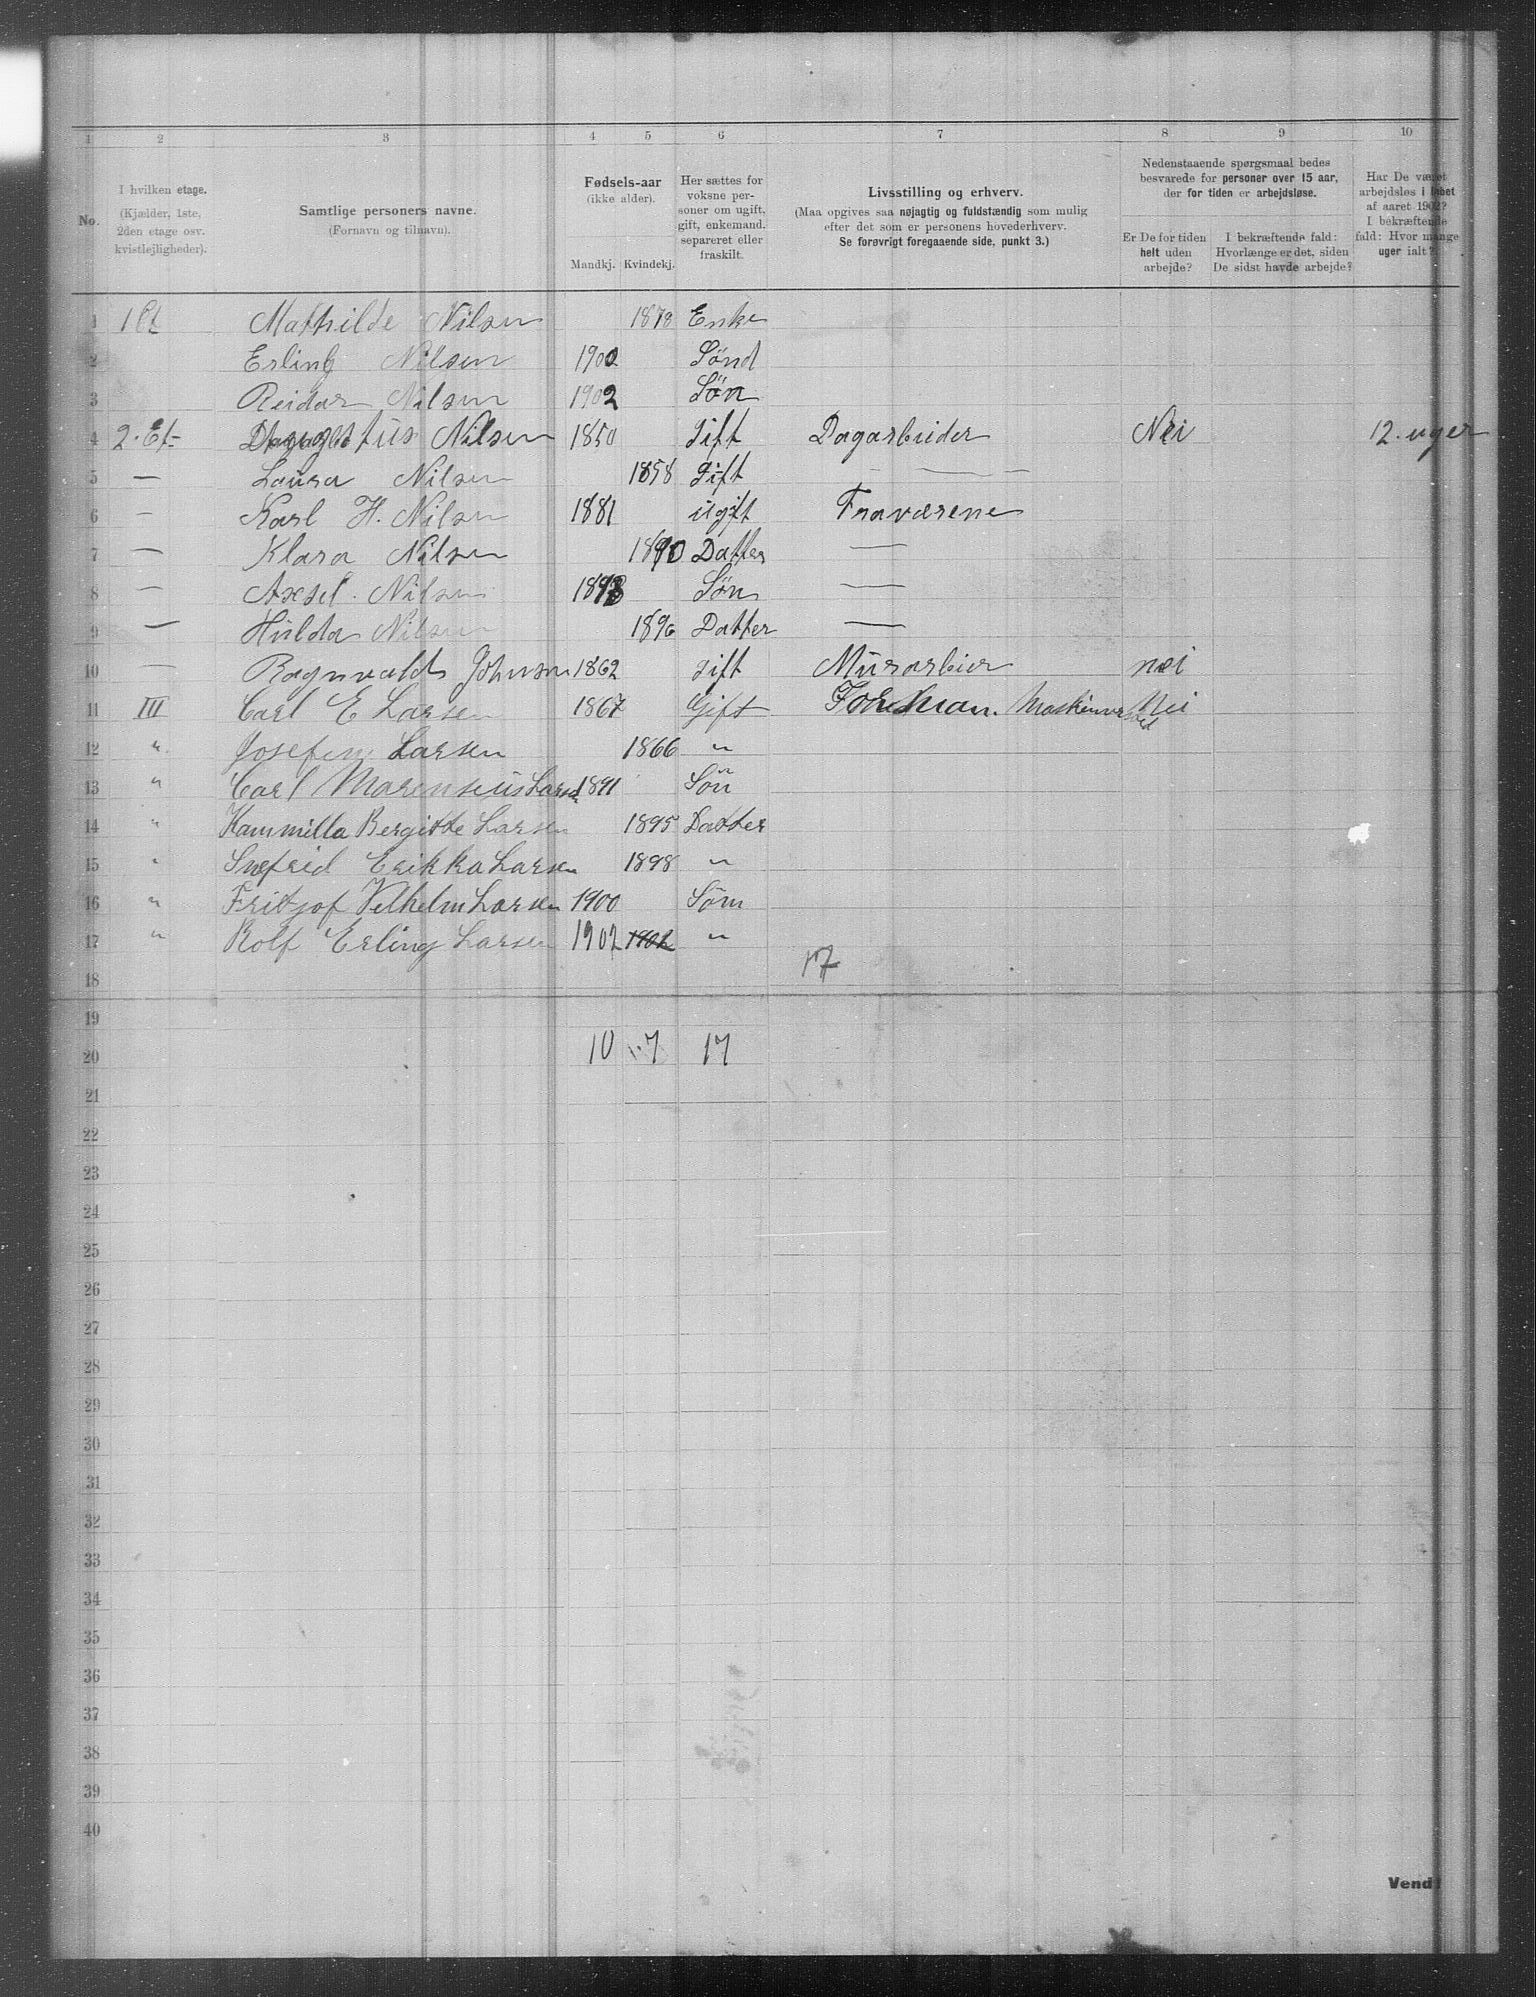 1 2 3 4 5 6 7 8 9 10
No.
I hvilken etage.
(Kjælder, 1ste,
2den etage osv.
kvistlejligheder).
Samtlige personers navne.
(Fornavn og tilnavn).
Fødsels-aar
(ikke alder).
Mandkj. Kvindekj.
Her sættes for
voksne per-
soner om ugift,
gift, enkemand,
separeret eller
fraskilt.
Livsstilling og erhverv.
(Maa opgives saa nøjagtig og fuldstændig som mulig
efter det som er personens hovederhverv.
Se forøvrigt foregaaende side, punkt 3.)
Nedenstaaende spørgsmaal bedes
besvarede for personer over 15 aar,
der for tiden er arbejdsløse.
Er De for tiden
helt uden
arbejde?
I bekræftende fald:
Hvorlænge er det, siden
De sidst havde arbejde?
Har De været
arbejdsløs i løbet
af aaret 1902?
I bekræftende
fald: Hvor mange
uger ialt?
1 1 Et Mathilde Nilsen 1878 Enke
2 Erling Nilsen 1900 Sönd
3 Reidar Nilsen 1902 Sön
4 2. Et- Nilsen 1850 Gift Dagarbeider Nei 12. uger
5 — Laura Nilsen 1858 Gift —
6 — Karl H. Nilsen 1881 ugift Fraværene
7 — Klara Nilsen 1890 Datter —
8 — Axsel. Nilsen 1893 Sön —
9 — Hulda Nilsen 1896 Datter —
10 — Ragnvald Johnsen 1862 Gift Murarbier nei
11 III Carl E Larsen 1867 Gift Formman. Maskinversted Nei
12 " Josefine Larsen 1866 "
13 " Carl Marensius Larsen 1891 Sön
14 " Kammilla Bergitte Larsen 1895 Datter
15 " Snefrid Erikka Larsen 1898 "
16 " Fritjof Velhelm Larsen 1900 Sön
17 " Rolf Erling Larsen 1902 1902 "
18 17
19
20 10 7 17
21
22
23
24
25
26
27
28
29
30
31
32
33
34
35
36
37
38
39
40
Vend!